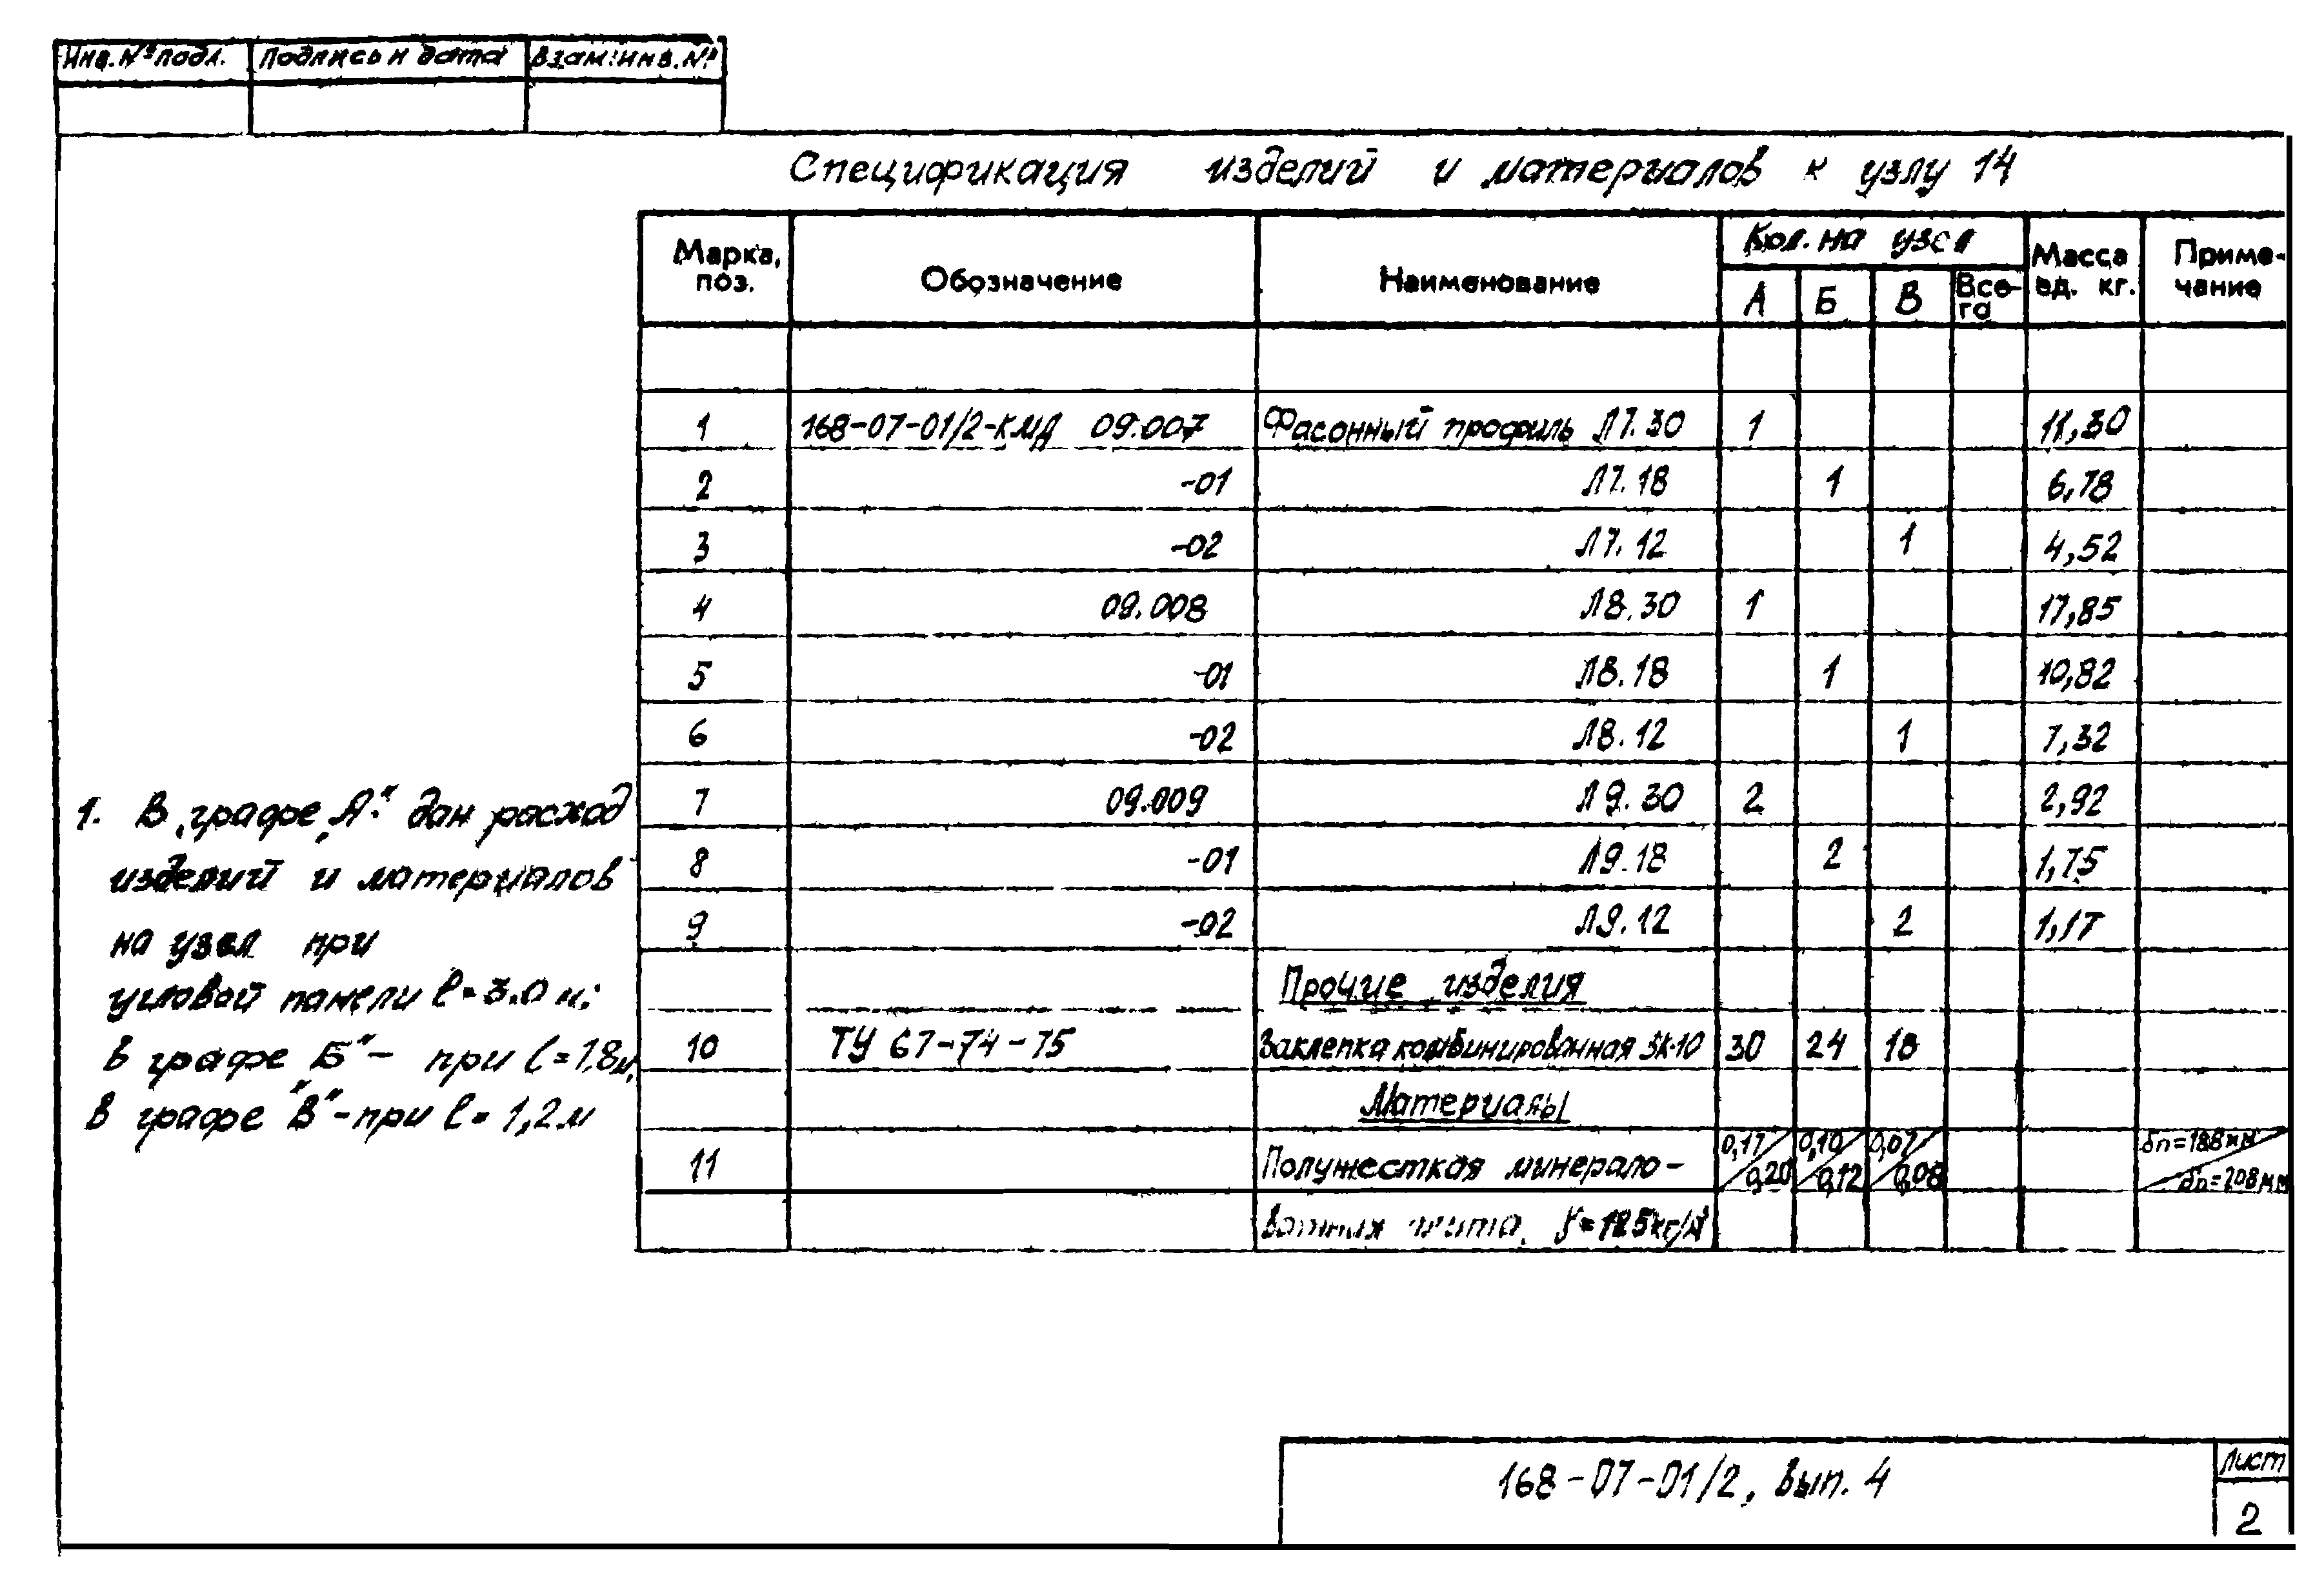 Инв. № подл. Подпись и дата Взам. инв. №
Спецификация изделий и материалов к узлу 14
Марка, поз. Обозначение Наименование Кол. на узел Масса ед. кг. Приме-чание
А Б В Все-го
1 168-07-01/2-КМД 09.007 Фасонный профиль Л7.30 1 11,30
2 -01 Л7.18 1 6,78
3 -02 Л7.12 1 4,52
4 09.008 Л8.30 1 17,85
5 -01 Л8.18 1 10,82
6 -02 Л8.12 1 7,32
7 09.009 Л9.30 2 2,92
8 -01 Л9.18 2 1,75
9 -02 Л9.12 2 1,17
Прочие изделия
10 ТУ 67-74-75 Заклепка комбинированная ЗК-10 30 24 18
Материалы
11 Полужесткая минерало- 0,17/0,20 0,10/0,12 0,07/0,08 δп=188мм/δп=208мм
ватная плита γ=125кг/м³
1. В графе „А" дан расход
изделий и материалов
на узел при
угловой панели l=3.0 м;
в графе Б" - при l=1.8м,
в графе "В" - при l=1,2м
168-07-01/2, вып. 4
Лист
2